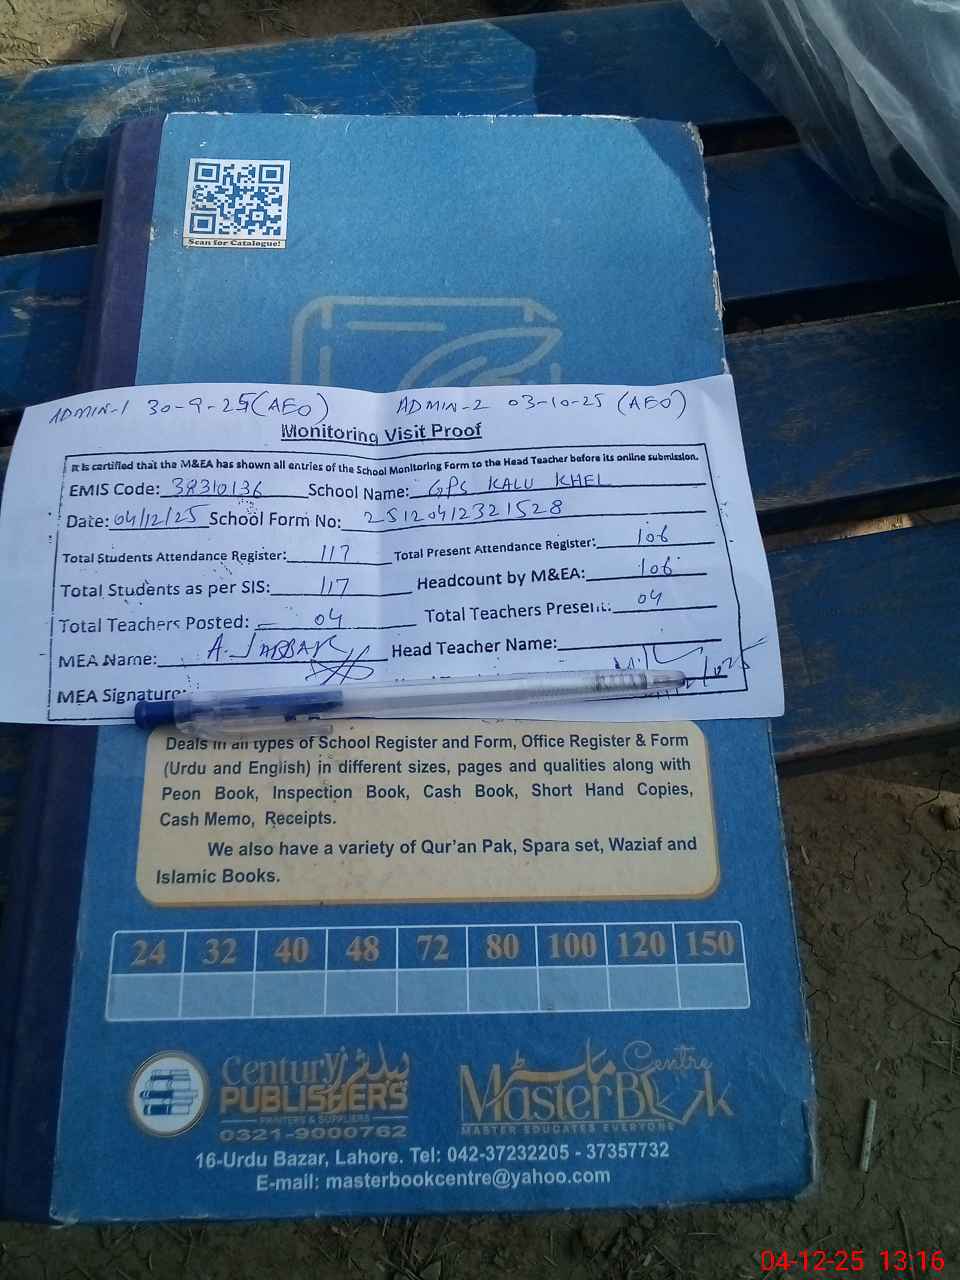 Scan for Catalogue!
ADMIN-1 30-9-25 (AEO) ADMIN-2 03-10-25 (AEO)
Monitoring Visit Proof
It is certified that the M&EA has shown all entries of the School Monitoring Form to the Head Teacher before its online submission.
EMIS Code: 38310136 School Name: GPS KALU KHEL
Date: 04/12/25 School Form No: 25120412321528
Total Students Attendance Register: 117 Total Present Attendance Register: 106
Total Students as per SIS: 117 Headcount by M&EA: 106
Total Teachers Posted: 04 Total Teachers Present: 04
MEA Name: A. JABBAR Head Teacher Name:
MEA Signature:
Deals in all types of School Register and Form, Office Register & Form
(Urdu and English) in different sizes, pages and qualities along with
Peon Book, Inspection Book, Cash Book, Short Hand Copies,
Cash Memo, Receipts.
We also have a variety of Qur'an Pak, Spara set, Waziaf and
Islamic Books.
24 32 40 48 72 80 100 120 150
Century PUBLISHERS
PRINTERS & SUPPLIERS
0321-9000762
MasterBook Centre
MASTER EDUCATES EVERYONE
16-Urdu Bazar, Lahore. Tel: 042-37232205 - 37357732
E-mail: masterbookcentre@yahoo.com
04-12-25 13:16